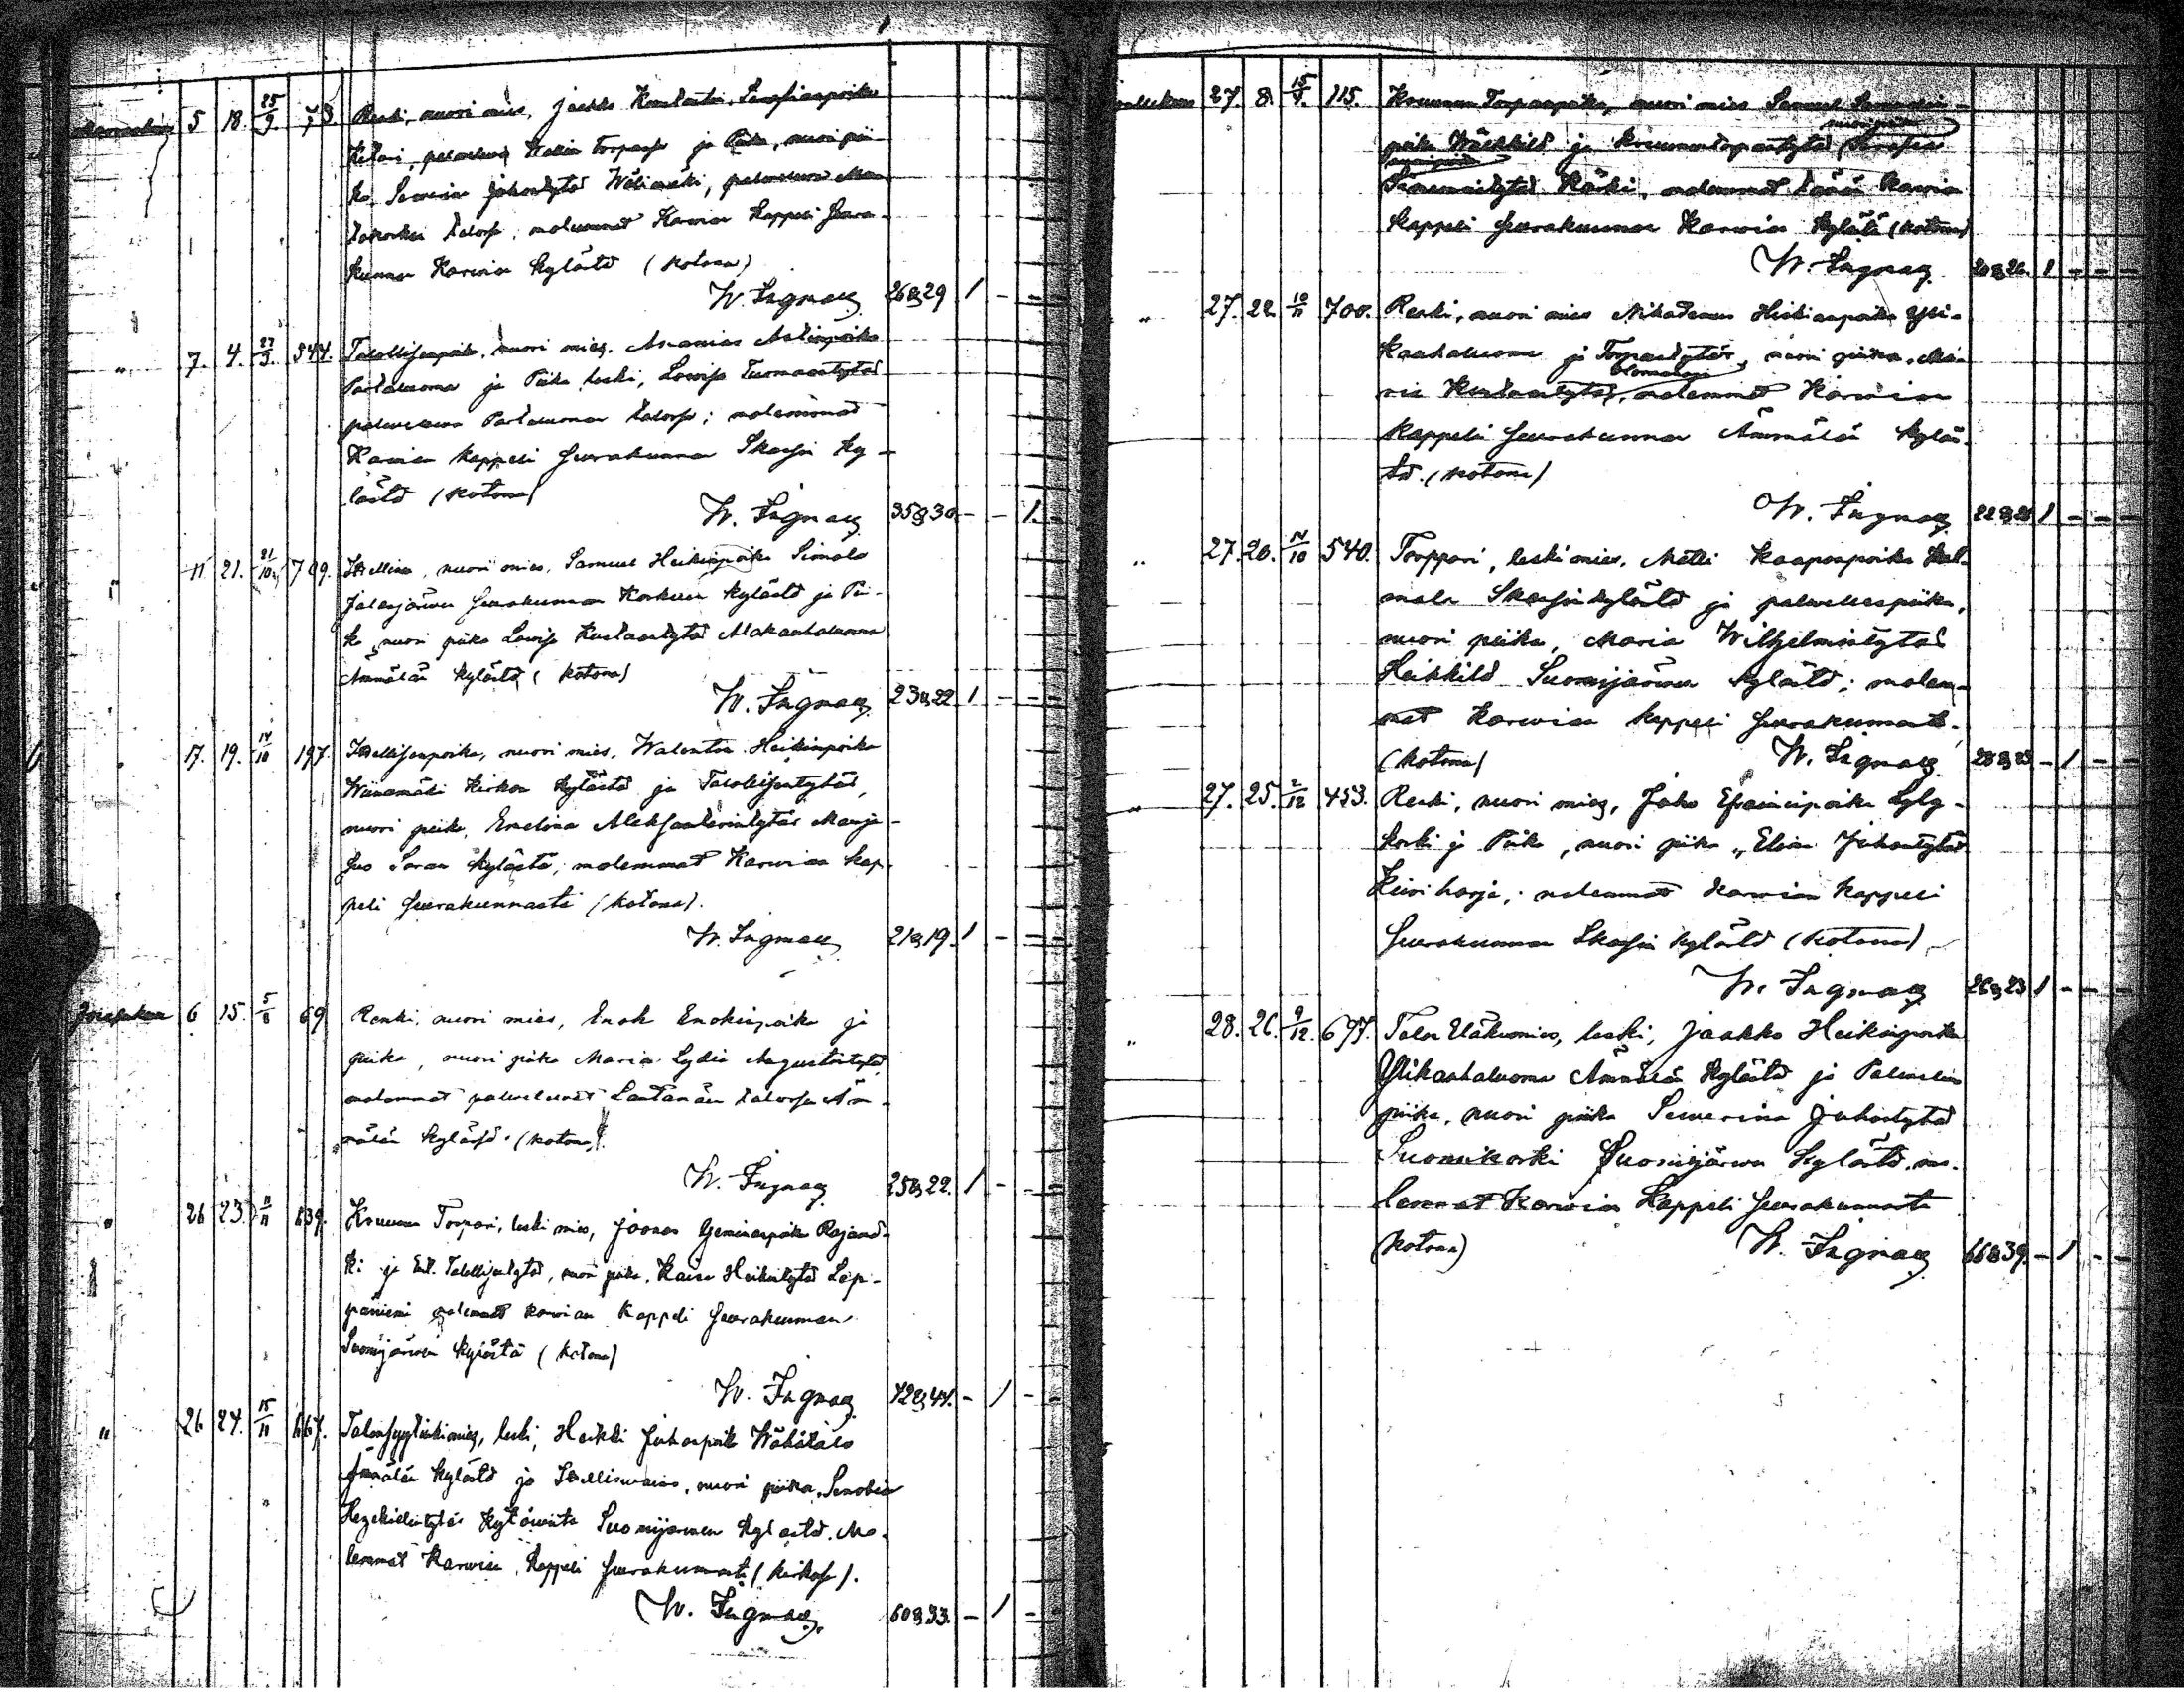 Marraskuu 5 18. 25/9. 73. Renki, nuori mies, Jaakko Kustaa
Ketari, palveleva Wallin torpassa ja Piika, nuori pii-
ka, Severina Juhontytär Wälimäki, palveleva
talossa; molemmat Karvian Kappeli Seura-
kunnan Karvian kylästä (kotona)
W. Ingman 26 & 29 1 - - -
" 7. 4. 27/9. 544. Talollisenpoika, nuori mies, Ananias Antinpoika
Partaluoma ja Piika leski, Lovisa Tuomaantytär
palveleva Partaluoman talossa; molemmat
Karvian kappeli seurakunnan Skarfin ky-
lästä (kotona)
W. Ingman 35 & 30. - - 1. -
" 11. 21. 21/10. 709. Itsellinen, nuori mies, Samuel Heikinpoika Simola
Jalasjärven seurakunnan Koskuen kylästä ja Pii-
ka nuori piika Lovisa Kustaantytär Alakauhaluoma
Ämmälän kylästä (kotona)
W. Ingman 23 & 22. 1 - - -
" 17. 19. 14/10 197. Itsellisenpoika, nuori mies, Walentin Heikinpoika
Wiinamäki Kirkon kylästä ja Talollisentytär,
nuori piika, Emelina Aleksanterintytär
Saran kylästä; molemmat Karvian kap-
peli seurakunnasta (kotona).
W. Ingman 21 & 19. 1 - - -
Joulukuu 6 15. 5/8 69 Renki, nuori mies, Enok Enokinpoika ja
piika, nuori piika Maria Lydia Augustintytär
molemmat palvelevat Lantanän talossa Äm-
mälän kylässä. (kotona).
W. Ingman 25 & 22. 1 - - -
" 26 23. 11/11 639. Kruunun Torpari, leski mies, Joonas Yeremiaanpoika Rajamä-
ki ja Ent. Talollisentytär, nuori piika, Kaisa Heikintytär Lep-
päniemi molemmat Karvian Kappeli Seurakunnan
Suomijärven kylästä (kotona)
W. Ingman 72 & 44. - 1 - -
" 26 24. 15/11 667. Talonsyytinkimies, leski, Heikki Juhonpoika Wähätalo
Ämmälän kylästä ja Itsellisvaimo, nuori piika, Senobia
Hezekielintytär Suomijärven kylästä. Mo-
lemmat Karvian Kappeli Seurakunnasta (kirkossa).
W. Ingman 60 & 33. - 1 - -
Joulukuu 27. 8. 15/9. 115. Kruunun Torparinpoika, nuori mies Samuel Samuelin-
nuori piika
poika Wäkkilä ja kruununtorparintytär Serafia
Simeonintytär Kärki, molemmat tään Karvian
Kappeli seurakunnan Karvian kylästä (kotona)
W. Ingman 20 & 20. 1 - - -
" 27. 22. 10/11 700. Renki, nuori mies Nikodemus Heikinpoika Yli-
kauhaluoma ja Torparintytär, nuori piika, Ma-
ria Kustaantytär, molemmat Karvian
kappeli seurakunnan Ämmälän kyläs-
tä. (kotona)
W. Ingman 22 & 1 - - -
" 27. 20. 14/10 540. Torppari, leski mies, Matti Kaaponpoika
Skarfin kylästä ja palveluspiika,
nuori piika, Maria Wilhelmiintytär
Heikkilä Suomijärven kylästä; molem-
mat Karvian kappeli seurakunnasta.
(kotona) W. Ingman - 1 - -
" 27. 25. 2/12 453. Renki, nuori mies, Juho Efraiminpoika Lyly-
koski ja Piika, nuori piika, Elina Juhontytär
Kiviharja; molemmat Karvian kappeli
seurakunnan Skarfin kylästä (kotona)
W. Ingman 26 & 23 1 - - -
" 28. 26. 9/12. 677. Talon Eläkemies, leski, Jaakko Heikinpoika
Ylikauhaluoma Ämmälän kylästä ja Palvelus
piika, nuori piika Severina Juhontytär
Suomikoski Suomijärven kylästä, mo-
lemmat Karvian Kappeli seurakunnasta
(kotona) W. Ingman 66 & 39. - 1 - -